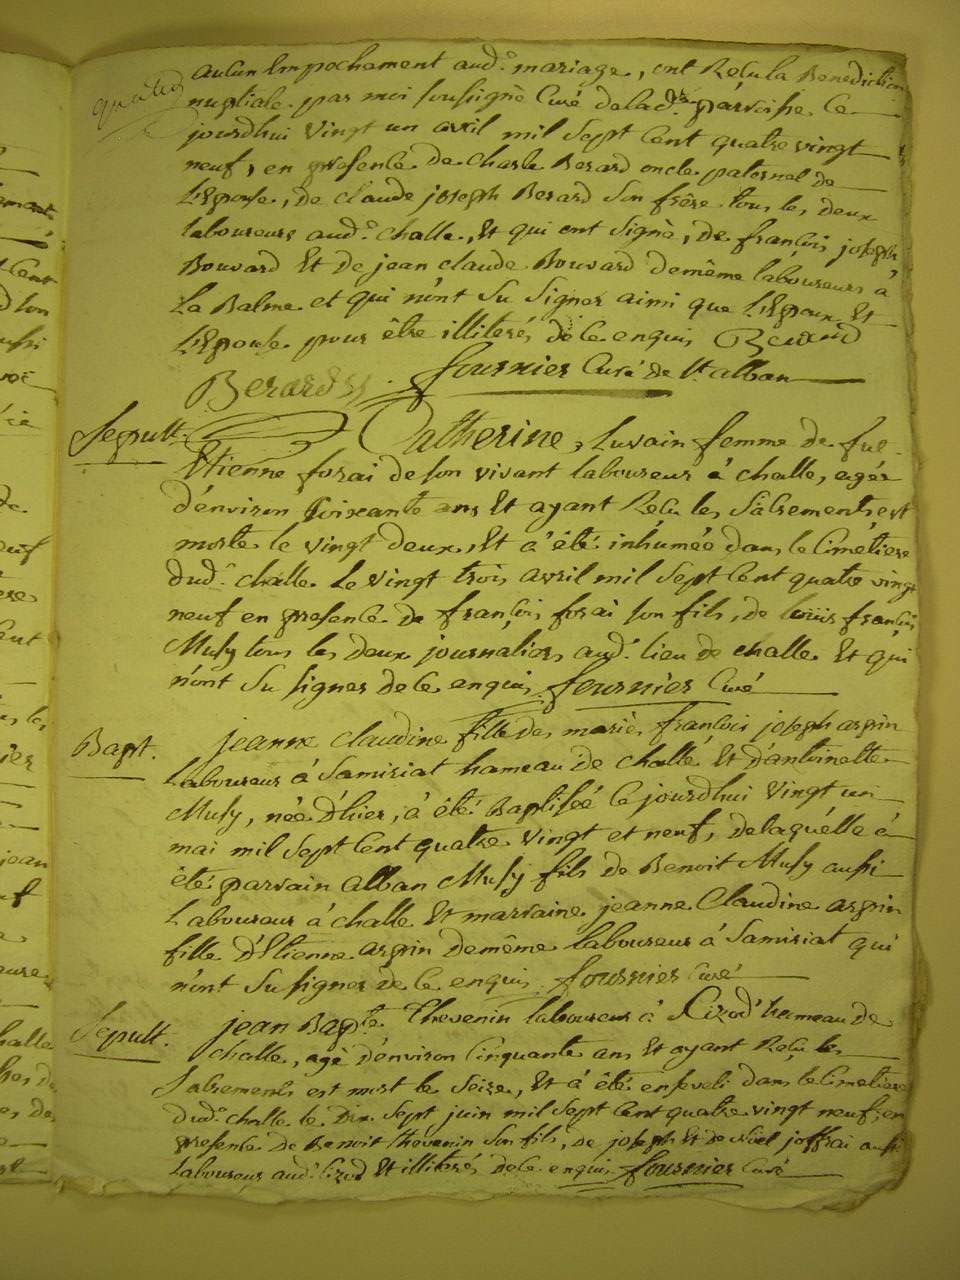 aucun Empechement aud.^t mariage, ont Reçu la Benediction
nuptiale par moi soussigné Curé de lad.^te parroisse Ce
jourdhui Vingt un avril mil Sept Cent quatre vingt
neuf, en presence de Charle Berard oncle paternel de
L'Epouse, de Claude joseph Berard Son frére tous les deux
laboureurs aud.^t Challe, Et qui ont signé, de françois joseph
Bouvard Et de jean claude Bouvard demême laboureurs à
La Balme et qui n'ont Su Signer ainsi que L'Epoux Et
L'Epouse pour être illiterés de ce enquis Berard
Berard fournier Curé de St. alban
Sepult. Catherine Luvain femme de fut
Etienne forai de son vivant laboureur à challe, agée
d'environ Soixante ans Et ayant Reçu les Sacrements est
morte le vingt deux, Et a été inhumée dans le Cimetiere
dud.^t challe Le vingt trois avril mil Sept Cent quatre vingt
neuf en presence de françois forai son fils, de louis françois
Musy tous les deux journaliers aud.^t lieu de challe Et qui
n'ont Su signer de ce enquis fournier Curé
Bapt. jeanne Claudine fille des mariés françois joseph arpin
Laboureur à Samiriat hameau de challe Et d'antoinette
Musy, née D'hier, à été Baptisée Ce jourdhui Vingt un
mai mil Sept Cent quatre vingt et neuf, de laquelle à
été parrain alban Musy fils de Benoit Musy aussi
Laboureur à challe Et marraine jeanne Claudine arpin
fille d'Etienne arpin demême laboureur à Samiriat qui
n'ont Su signer de ce enquis fournier Curé
Sepult. jean Bap^te. Thevenin laboureur à Cizod hameau de
Challe, agé d'environ Cinquante ans Et ayant Reçu les
Sacrements est mort le Seize, Et à été enseveli dans le Cimetiere
dud.^t challe le Dix Sept juin mil Sept Cent quatre vingt neuf, en
presence de Benoit thevenin Son fils, de joseph Et de Noël joffrai aussi
Laboureurs aud.^t Cizod Et illiterés de ce enquis fournier Curé